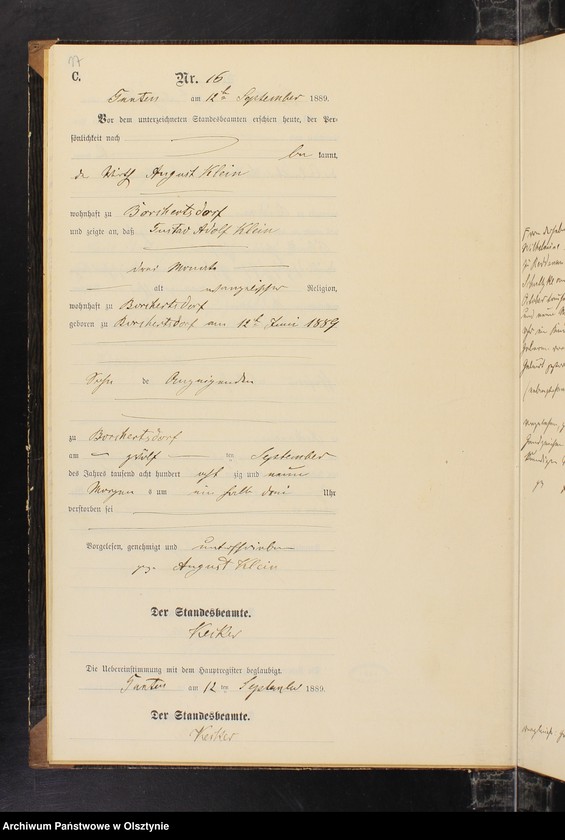 C.
Nr. 16
am 12t September 1889.
Vor dem unterzeichneten Standesbeamten erschien heute, der Per-
sönlichkeit nach
be kannt,
de Wirth August Klein
wohnhaft zu Borchertsdorf
und zeigte an, daß Gustav Adolf Klein
drei Monate
alt evangelischer Religion,
wohnhaft zu Borchertsdorf
geboren zu Borchertsdorf am 12t Juni 1889
Sohn de Anzeigenden
zu Borchertsdorf
am zwölf ten September
des Jahres tausend acht hundert acht zig und neun
Morgen s um ein halb drei Uhr
verstorben sei
Vorgelesen, genehmigt und unterschrieben
gez. August Klein
Der Standesbeamte.
Die Uebereinstimmung mit dem Hauptregister beglaubigt.
am 12 ten September 1889.
Der Standesbeamte.
Archiwum Państwowe w Olsztynie